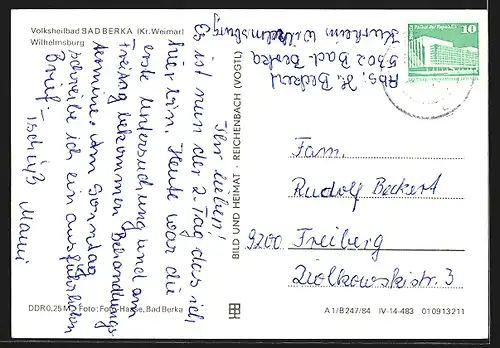 Volksheilbad BAD BERKA (Kr. Weimar)
Wilhelmsburg
Ihr lieben!
Es ist nun der 2. Tag das ich
hier bin. Heute war die
erste Untersuchung und am
Freitag bekommen Behandlungs
termine. Am Sonntag
schreibe ich ein ausführlichen
Brief.
Tschüß Mani
DDR 0,25 M Foto: Foto-Hasse, Bad Berka
BILD UND HEIMAT · REICHENBACH (VOGTL)
Abs. H. Beckert
5302 Bad Berka
Kurheim Wilhelmsburg
10
Fam.
Rudolf Beckert
9200 Freiberg
Ziolkowskistr. 3
A 1/B 247/84 IV-14-483 010913211